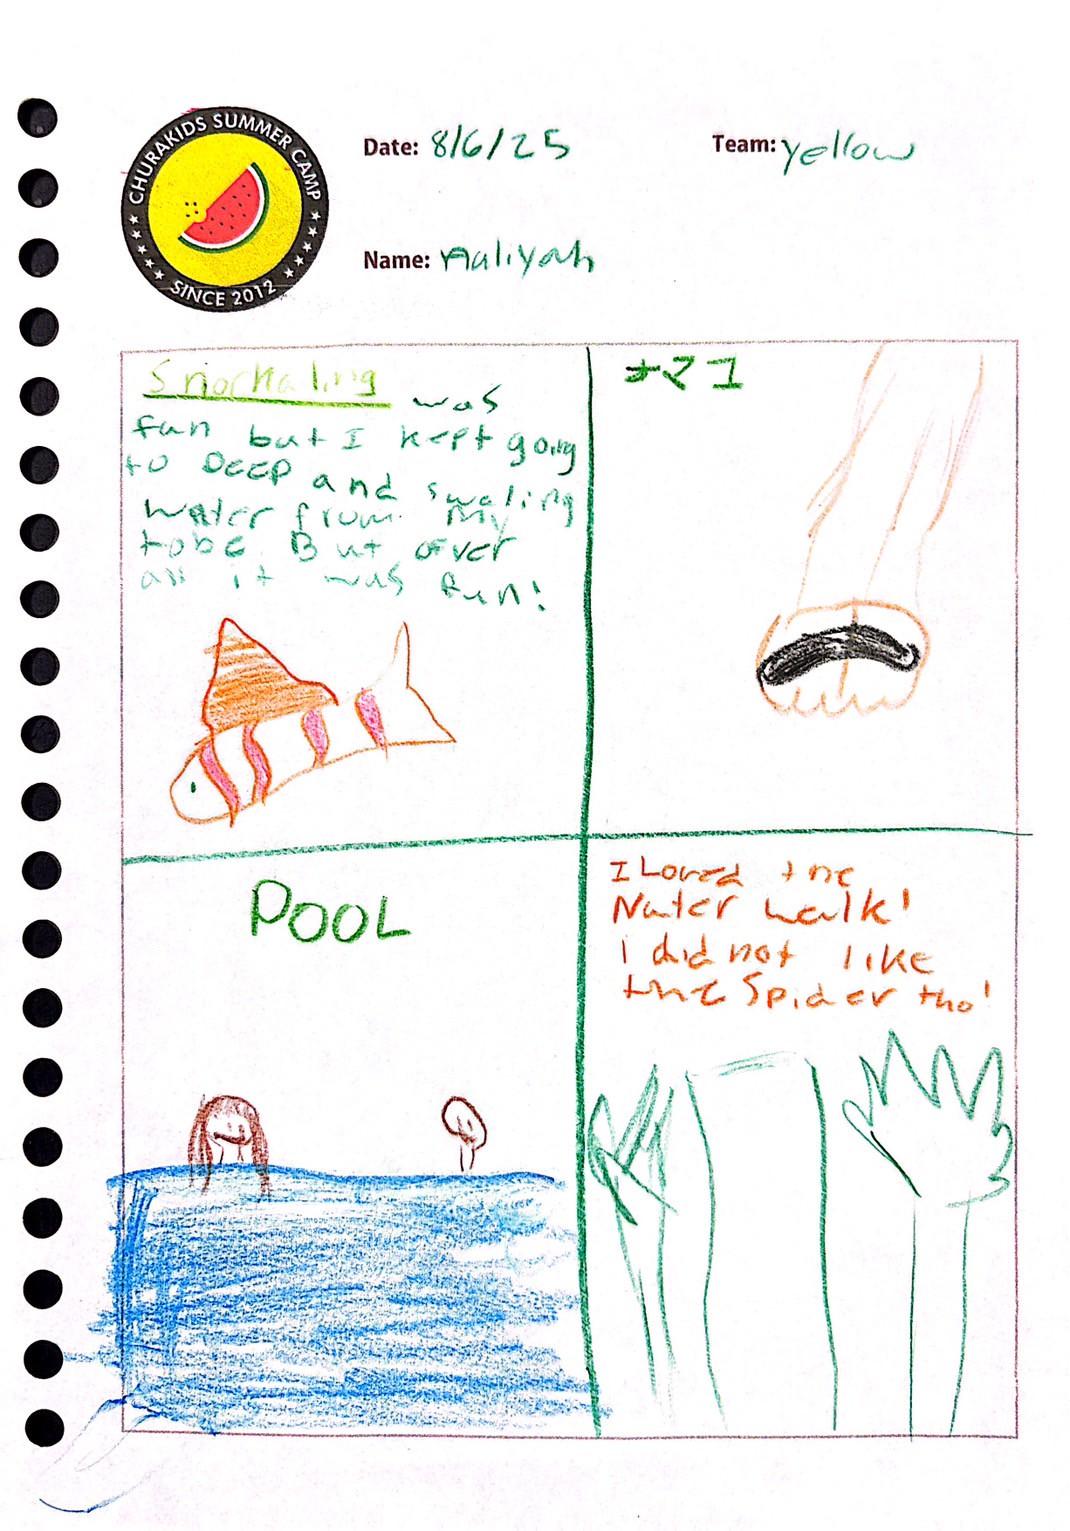 CHURAKIDS SUMMER CAMP
SINCE 2012
Date: 8/6/25
Team: yellow
Name: Aaliyah
Snorkaling was
fun but I kept going
to DEEP and swaling
water from My
tobe. But over
all it was fun!
POOL
I Loved the
Nater walk!
I did not like
the Spider tho!